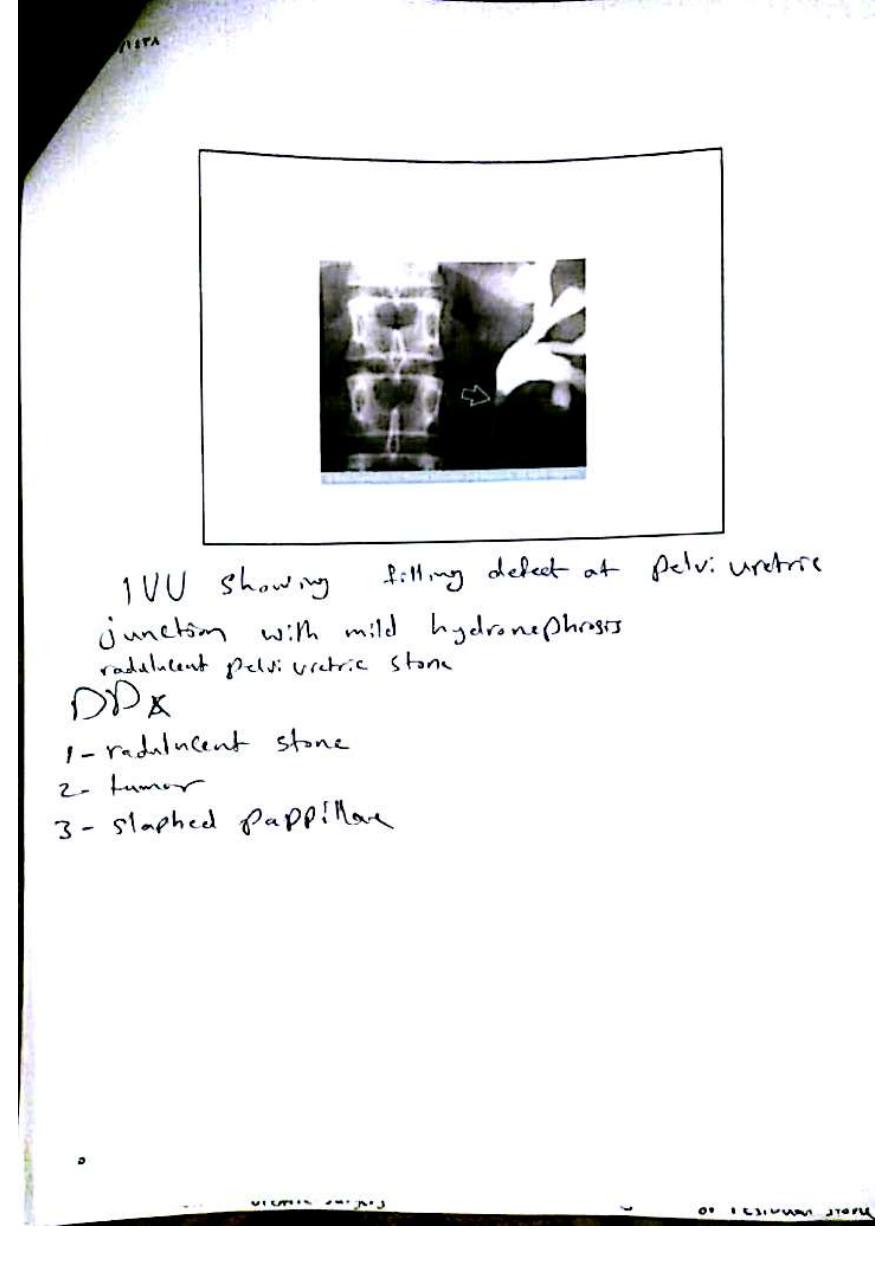 ١٤٣٨
IVU showing filling defect at pelvi uretric
junction with mild hydronephrosis
radulucent pelvi uretric stone
DDx
1- radulucent stone
2- tumor
3- slaphed pappillae
٥